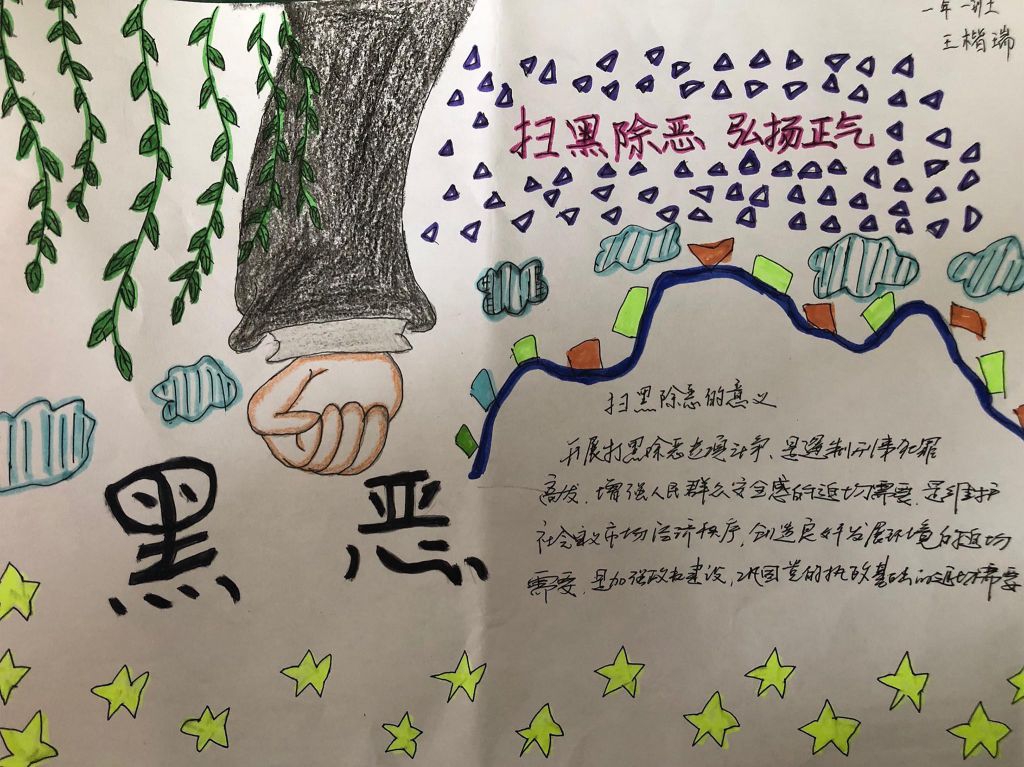 一年一班
王楷瑞
扫黑除恶 弘扬正气
黑 恶
扫黑除恶的意义
开展扫黑除恶专项斗争、是遏制刑事犯罪
高发、增强人民群众安全感的迫切需要、是维护
社会主义市场经济秩序，创造良好发展环境的迫切
需要，是加强政权建设，巩固党的执政基础的迫切需要